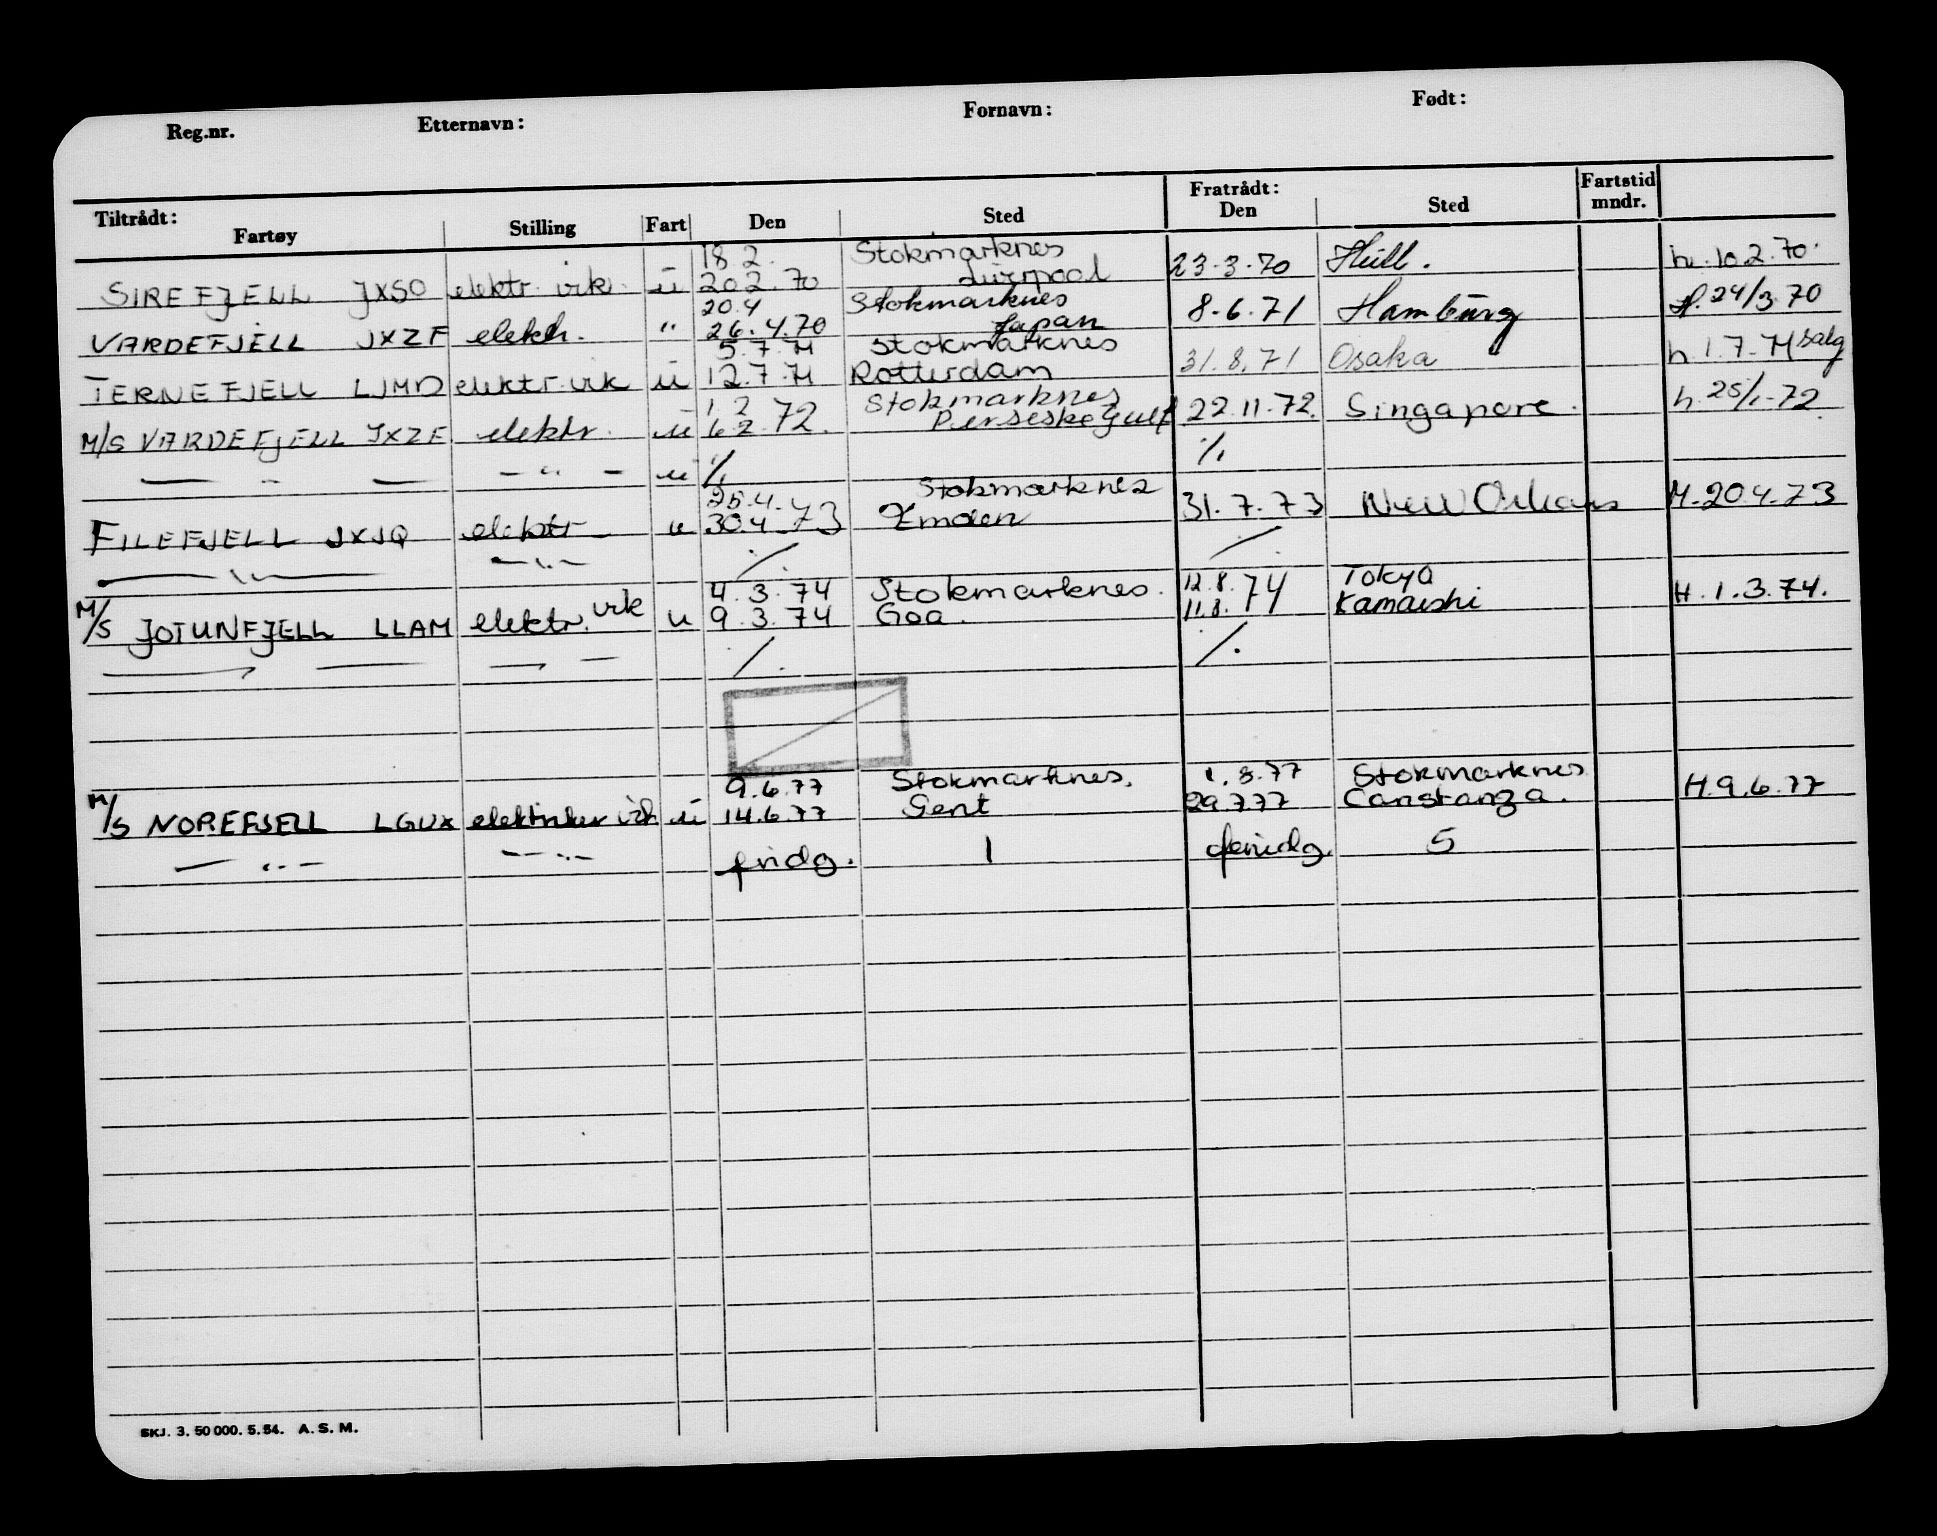 Reg.nr. Etternavn: Fornavn: Født:
Tiltrådt: Fratrådt: Fartstid
Fartøy Stilling Fart Den Sted Den Sted mndr.
18 2. Stokmarknes
SIREFJELL JXSO elektr. virk. u 20 2. 70 Liverpool 23.3.70 Hull. h. 10.2.70.
20.4 Stokmarknes
VARDEFJELL JXZF elektr. " 26.4.70 Japan 8.6.71 Hamburg H. 24/3.70
5.7.71 Stokmarknes
TERNEFJELL LJMD elektr. virk u 12.7.71 Rotterdam 31.8.71 Osaka h. 1.7.71 salg
1 2 Stokmarknes
M/S VARDEFJELL JXZF elektr. u 6 2 72. Perseske gulf 22.11.72. Singapore. h. 25/1-72.
— " — — " — u ./. ./.
25.4. Stokmarknes
FILEFJELL JXJQ elektr u 30.4.73 Emden 31.7.73 New Orleans M-20.4.73
— " — — " — ./. ./.
4.3.74 Stokmarknes. 12.8. Tokyo
M/S JOTUNFJELL LLAM elektr. virk u 9.3.74 Goa. 11.8.74 Kamaishi H.1.3.74.
./. ./.
9.6.77 Stokmarknes. 1.8.77 Stokmarknes
M/S NOREFJELL LGUX elektriker virk u 14.6.77 Gent 29.7.77 Constanza. H.9.6.77
— " — — " — fridg. 1 feridg. 5
SKJ. 3. 50 000. 5.54. A. S. M.